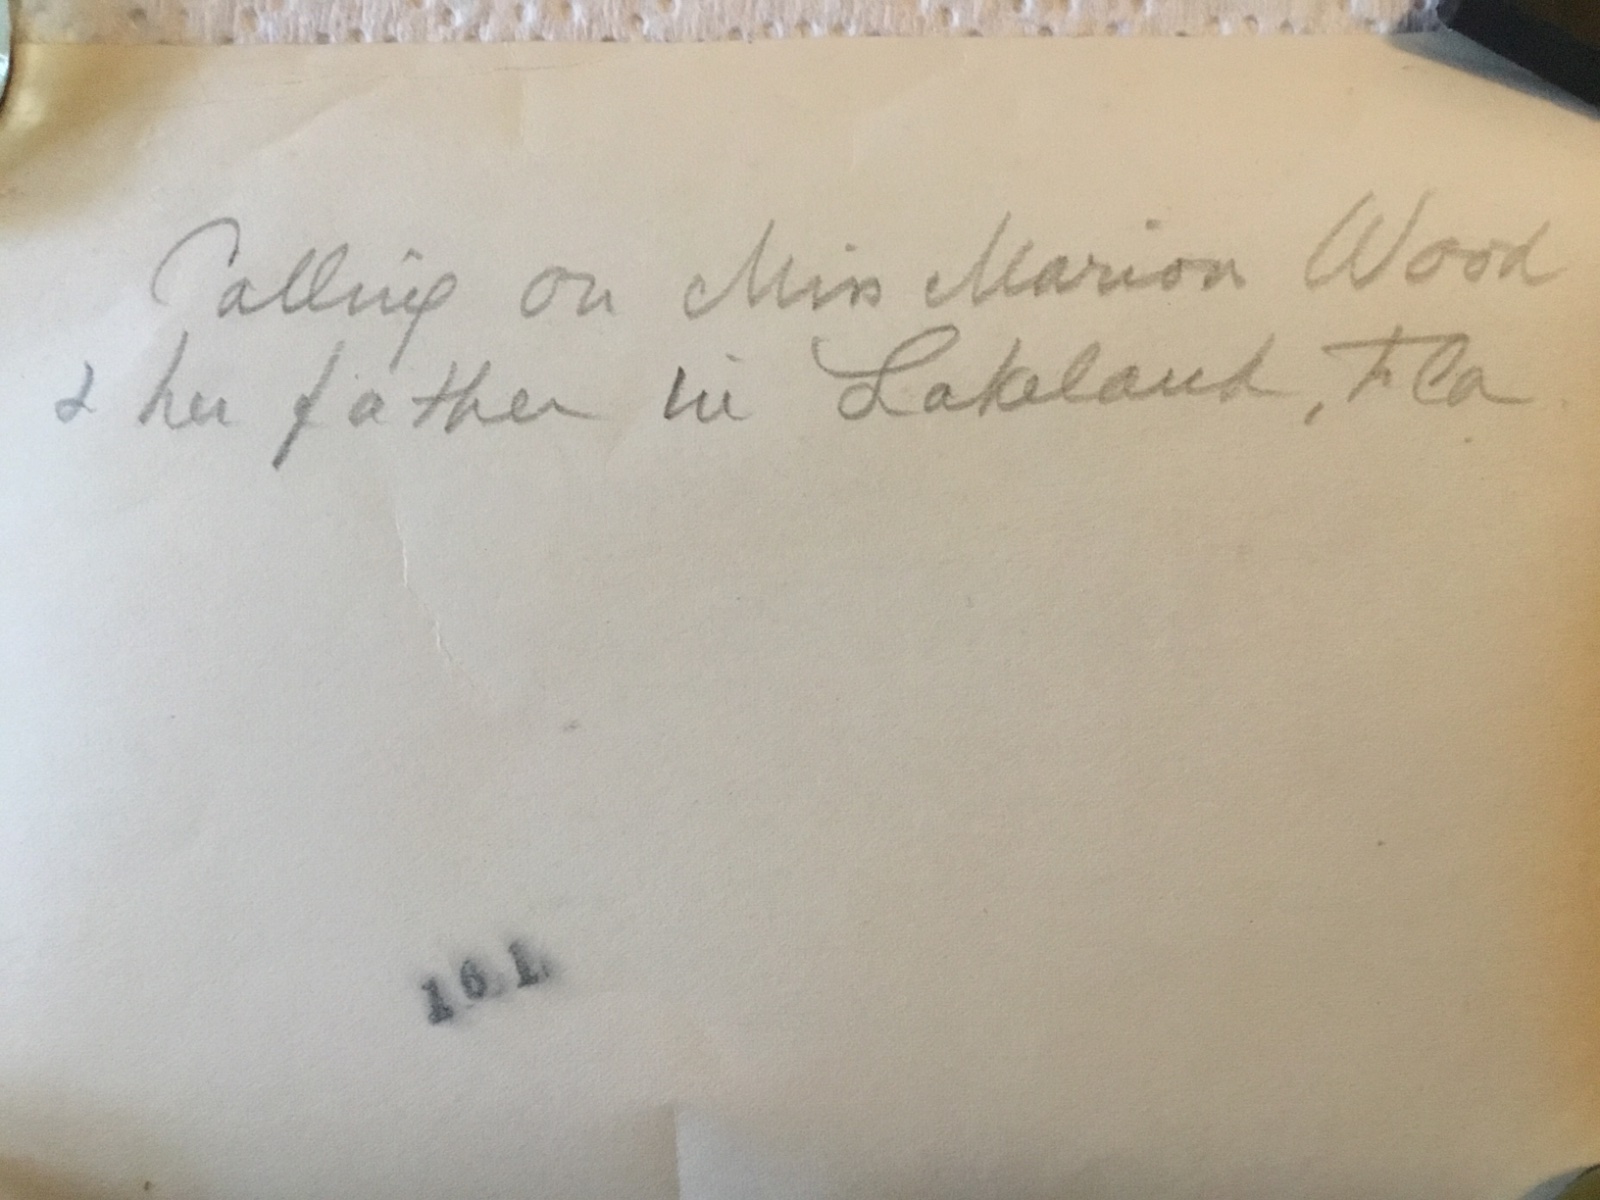 Calling on Miss Marion Wood
& her father in Lakeland, Fla.
161